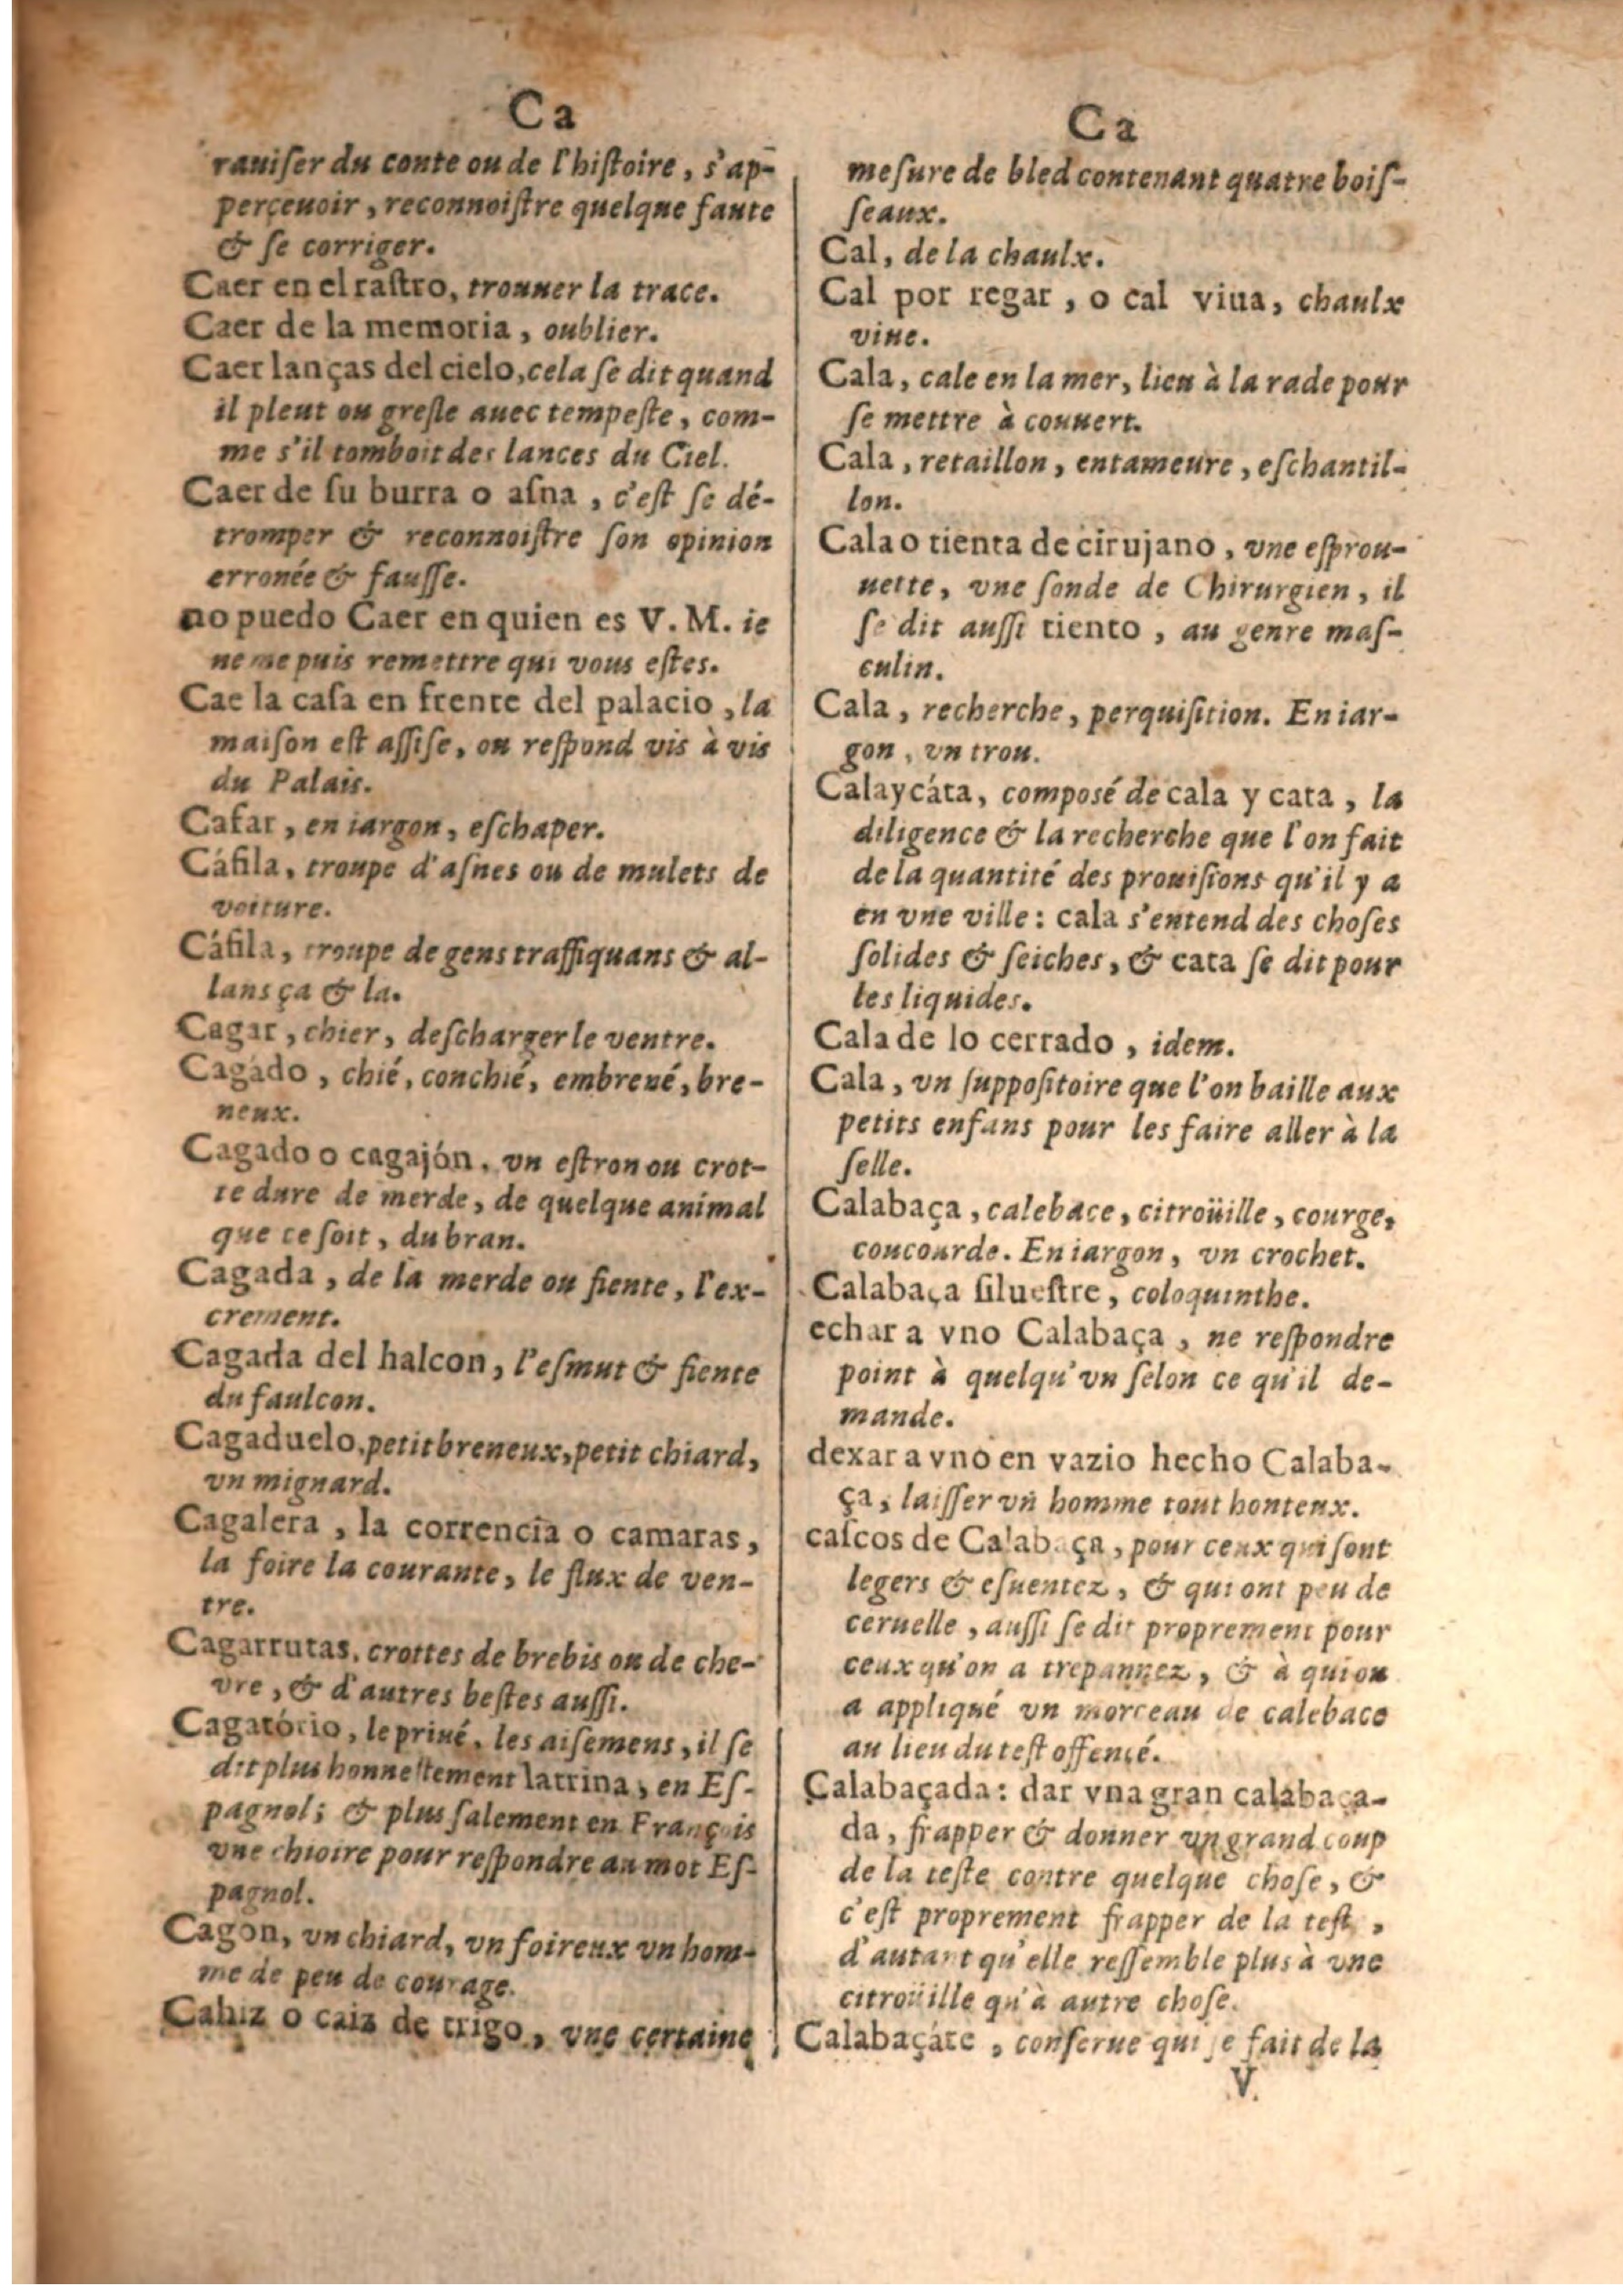 Ca
rauiſer du conte ou de l'hiſtoire, s'ap-
perçeuoir, reconnoiſtre quelque faute
& ſe corriger.
Caer en el raſtro, trouuer la trace.
Caer de la memoria, oublier.
Caer lanças del cielo, cela ſe dit quand
il pleut ou greſle auec tempeſte, com-
me s'il tomboit des lances du Ciel.
Caer de ſu burra o aſna, c'eſt ſe dé-
tromper & reconnoiſtre ſon opinion
erronée & fauſſe.
no puedo Caer en quien es V. M. ie
ne me puis remettre qui vous eſtes.
Cae la caſa en frente del palacio, la
maiſon eſt aſſiſe, ou reſpond vis à vis
du Palais.
Cafar, en iargon, eſchaper.
Cáfila, troupe d'aſnes ou de mulets de
voiture.
Cáfila, troupe de gens traffiquans & al-
lans ça & la.
Cagar, chier, deſcharger le ventre.
Cagádo, chié, conchié, embrené, bre-
neux.
Cagado o cagajón, vn eſtron ou crot-
te dure de merde, de quelque animal
que ce ſoit, du bran.
Cagada, de la merde ou fiente, l'ex-
crement.
Cagada del halcon, l'eſmut & fiente
du faulcon.
Cagaduelo, petit breneux, petit chiard,
vn mignard.
Cagalera, la correncia o camaras,
la foire la courante, le flux de ven-
tre.
Cagarrutas, crottes de brebis ou de che-
vre, & d'autres beſtes auſſi.
Cagatório, le priué, les aiſemens, il ſe
dit plus honneſtement latrina, en Eſ-
pagnol; & plus ſalement en François
vne chioire pour reſpondre au mot Eſ-
pagnol.
Cagon, vn chiard, vn foireux vn hom-
me de peu de courage.
Cahiz o caiz de trigo, vne certaine
Ca
meſure de bled contenant quatre boiſ-
ſeaux.
Cal, de la chaulx.
Cal por regar, o cal viua, chaulx
viue.
Cala, cale en la mer, lieu à la rade pour
ſe mettre à couuert.
Cala, retaillon, entameure, eſchantil-
lon.
Cala o tienta de cirujano, vne eſprou-
uette, vne ſonde de Chirurgien, il
ſe dit auſſi tiento, au genre maſ-
culin.
Cala, recherche, perquiſition. En iar-
gon, vn trou.
Calaycáta, compoſé de cala y cata, la
diligence & la recherche que l'on fait
de la quantité des prouiſions qu'il y a
en vne ville: cala s'entend des choſes
ſolides & ſeiches, & cata ſe dit pour
les liquides.
Cala de lo cerrado, idem.
Cala, vn ſuppoſitoire que l'on baille aux
petits enfans pour les faire aller à la
ſelle.
Calabaça, calebace, citroüille, courge,
concourde. En iargon, vn crochet.
Calabaça ſilueſtre, coloquinthe.
echar a vno Calabaça, ne reſpondre
point à quelqu'vn ſelon ce qu'il de-
mande.
dexar a vno en vazio hecho Calaba-
ça, laiſſer vn homme tout honteux.
caſcos de Calabaça, pour ceux qui ſont
legers & eſuentez, & qui ont peu de
ceruelle, auſſi ſe dit proprement pour
ceux qu'on a trepannez, & à qui on
a appliqué vn morceau de calebace
au lieu du teſt offencé.
Calabaçada: dar vna gran calabaça-
da, frapper & donner vn grand coup
de la teſte contre quelque choſe, &
c'eſt proprement frapper de la teſt,
d'autant qu'elle reſſemble plus à vne
citroüille qu'à autre choſe.
Calabaçáte, conſerue qui ſe fait de la
V.